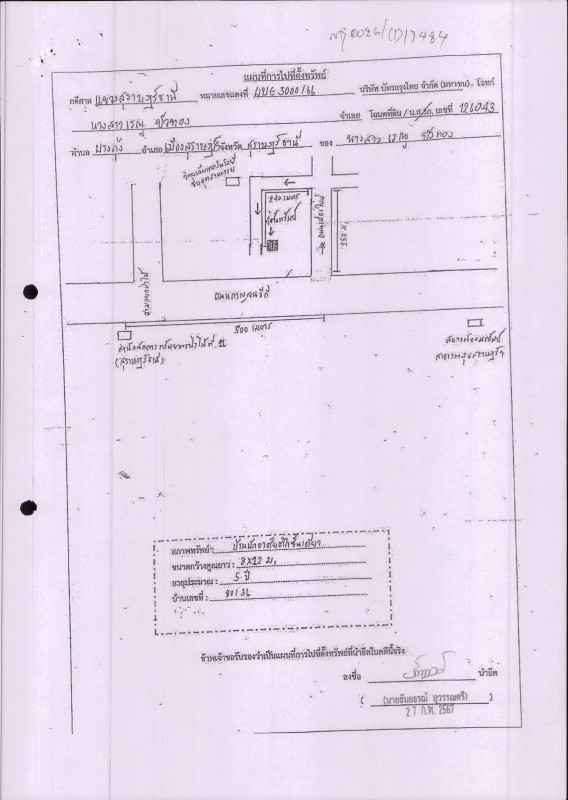 แผนที่การไปที่ตั้งทรัพย์
คดีศาล แขวงสุราษฎร์ธานี หมายเลขแดงที่ ผบE3000/66 บริษัท บัตรกรุงไทย จำกัด (มหาชน) - โจทก์
นางสาว เรณู จำเลย โฉนดที่ดิน / น.ส.3ก. เลขที่ 126043
ตำบล บางกุ้ง อำเภอ เมืองสุราษฎร์ฯ จังหวัด สุราษฎร์ธานี ของ นางสาว เรณู
240 เมตร
ที่ตั้งทรัพย์
250 ม.
ถนนกาญจนวิถี
500 เมตร
สำนักจัดการทรัพยากรป่าไม้ที่ 11
(สุราษฎร์ธานี)
สาขา
สภาพทรัพย์ : บ้านพักอาศัยตึกชั้นเดียว
ขนาดกว้างคูณยาว : 8x12 ม.
อายุประมาณ : 5 ปี
บ้านเลขที่ : 90/36
ข้าพเจ้าขอรับรองว่าเป็นแผนที่การไปที่ตั้งทรัพย์ที่นำยึดในคดีนี้จริง
ลงชื่อ นำยึด
( นายธันยธรณ์ สุวรรณศรี )
27 ก.พ. 2567